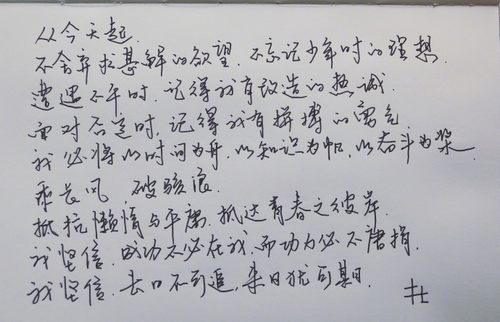 从今天起.
不舍弃求甚解的欲望.不忘记少年时的理想.
遭遇不平时.记得我有改造的热诚.
面对不公时.记得我有拼搏的勇气
我必将以时间为舟,以知识为帆,以奋斗为桨.
乘长风 破骇浪.
抵抗懒惰与平庸.抵达青春之彼岸.
我坚信.成功不必在我.而功力必不唐捐.
我坚信.去日不可追,来日犹可期.